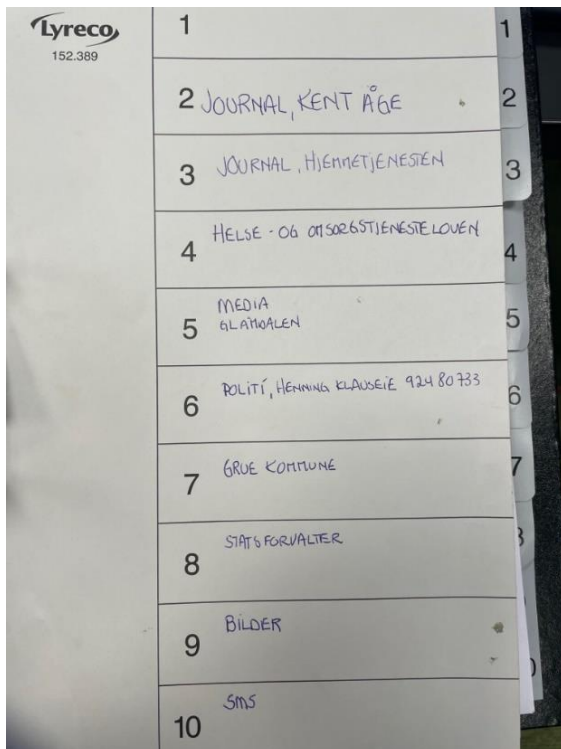 Lyreco
152.389
1
1
2 JOURNAL, KENT ÅGE
2
3 JOURNAL, HJEMMETJENESTEN
3
4 HELSE - OG OMSORGSTJENESTELOVEN
4
5 MEDIA
GLÅMDALEN
5
6 POLITI, HENNING KLAUSEIE 924 80 733
6
7 GRUE KOMMUNE
7
8 STATSFORVALTER
8
9 BILDER
10 SMS